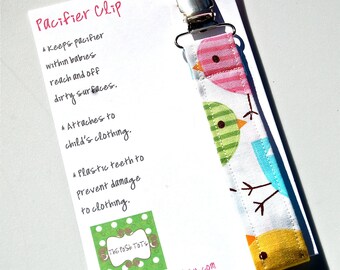 Pacifier Clip
* Keeps pacifier
within babies
reach and off
dirty surfaces.
* Attaches to
child's clothing.
* Plastic teeth to
prevent damage
to clothing.